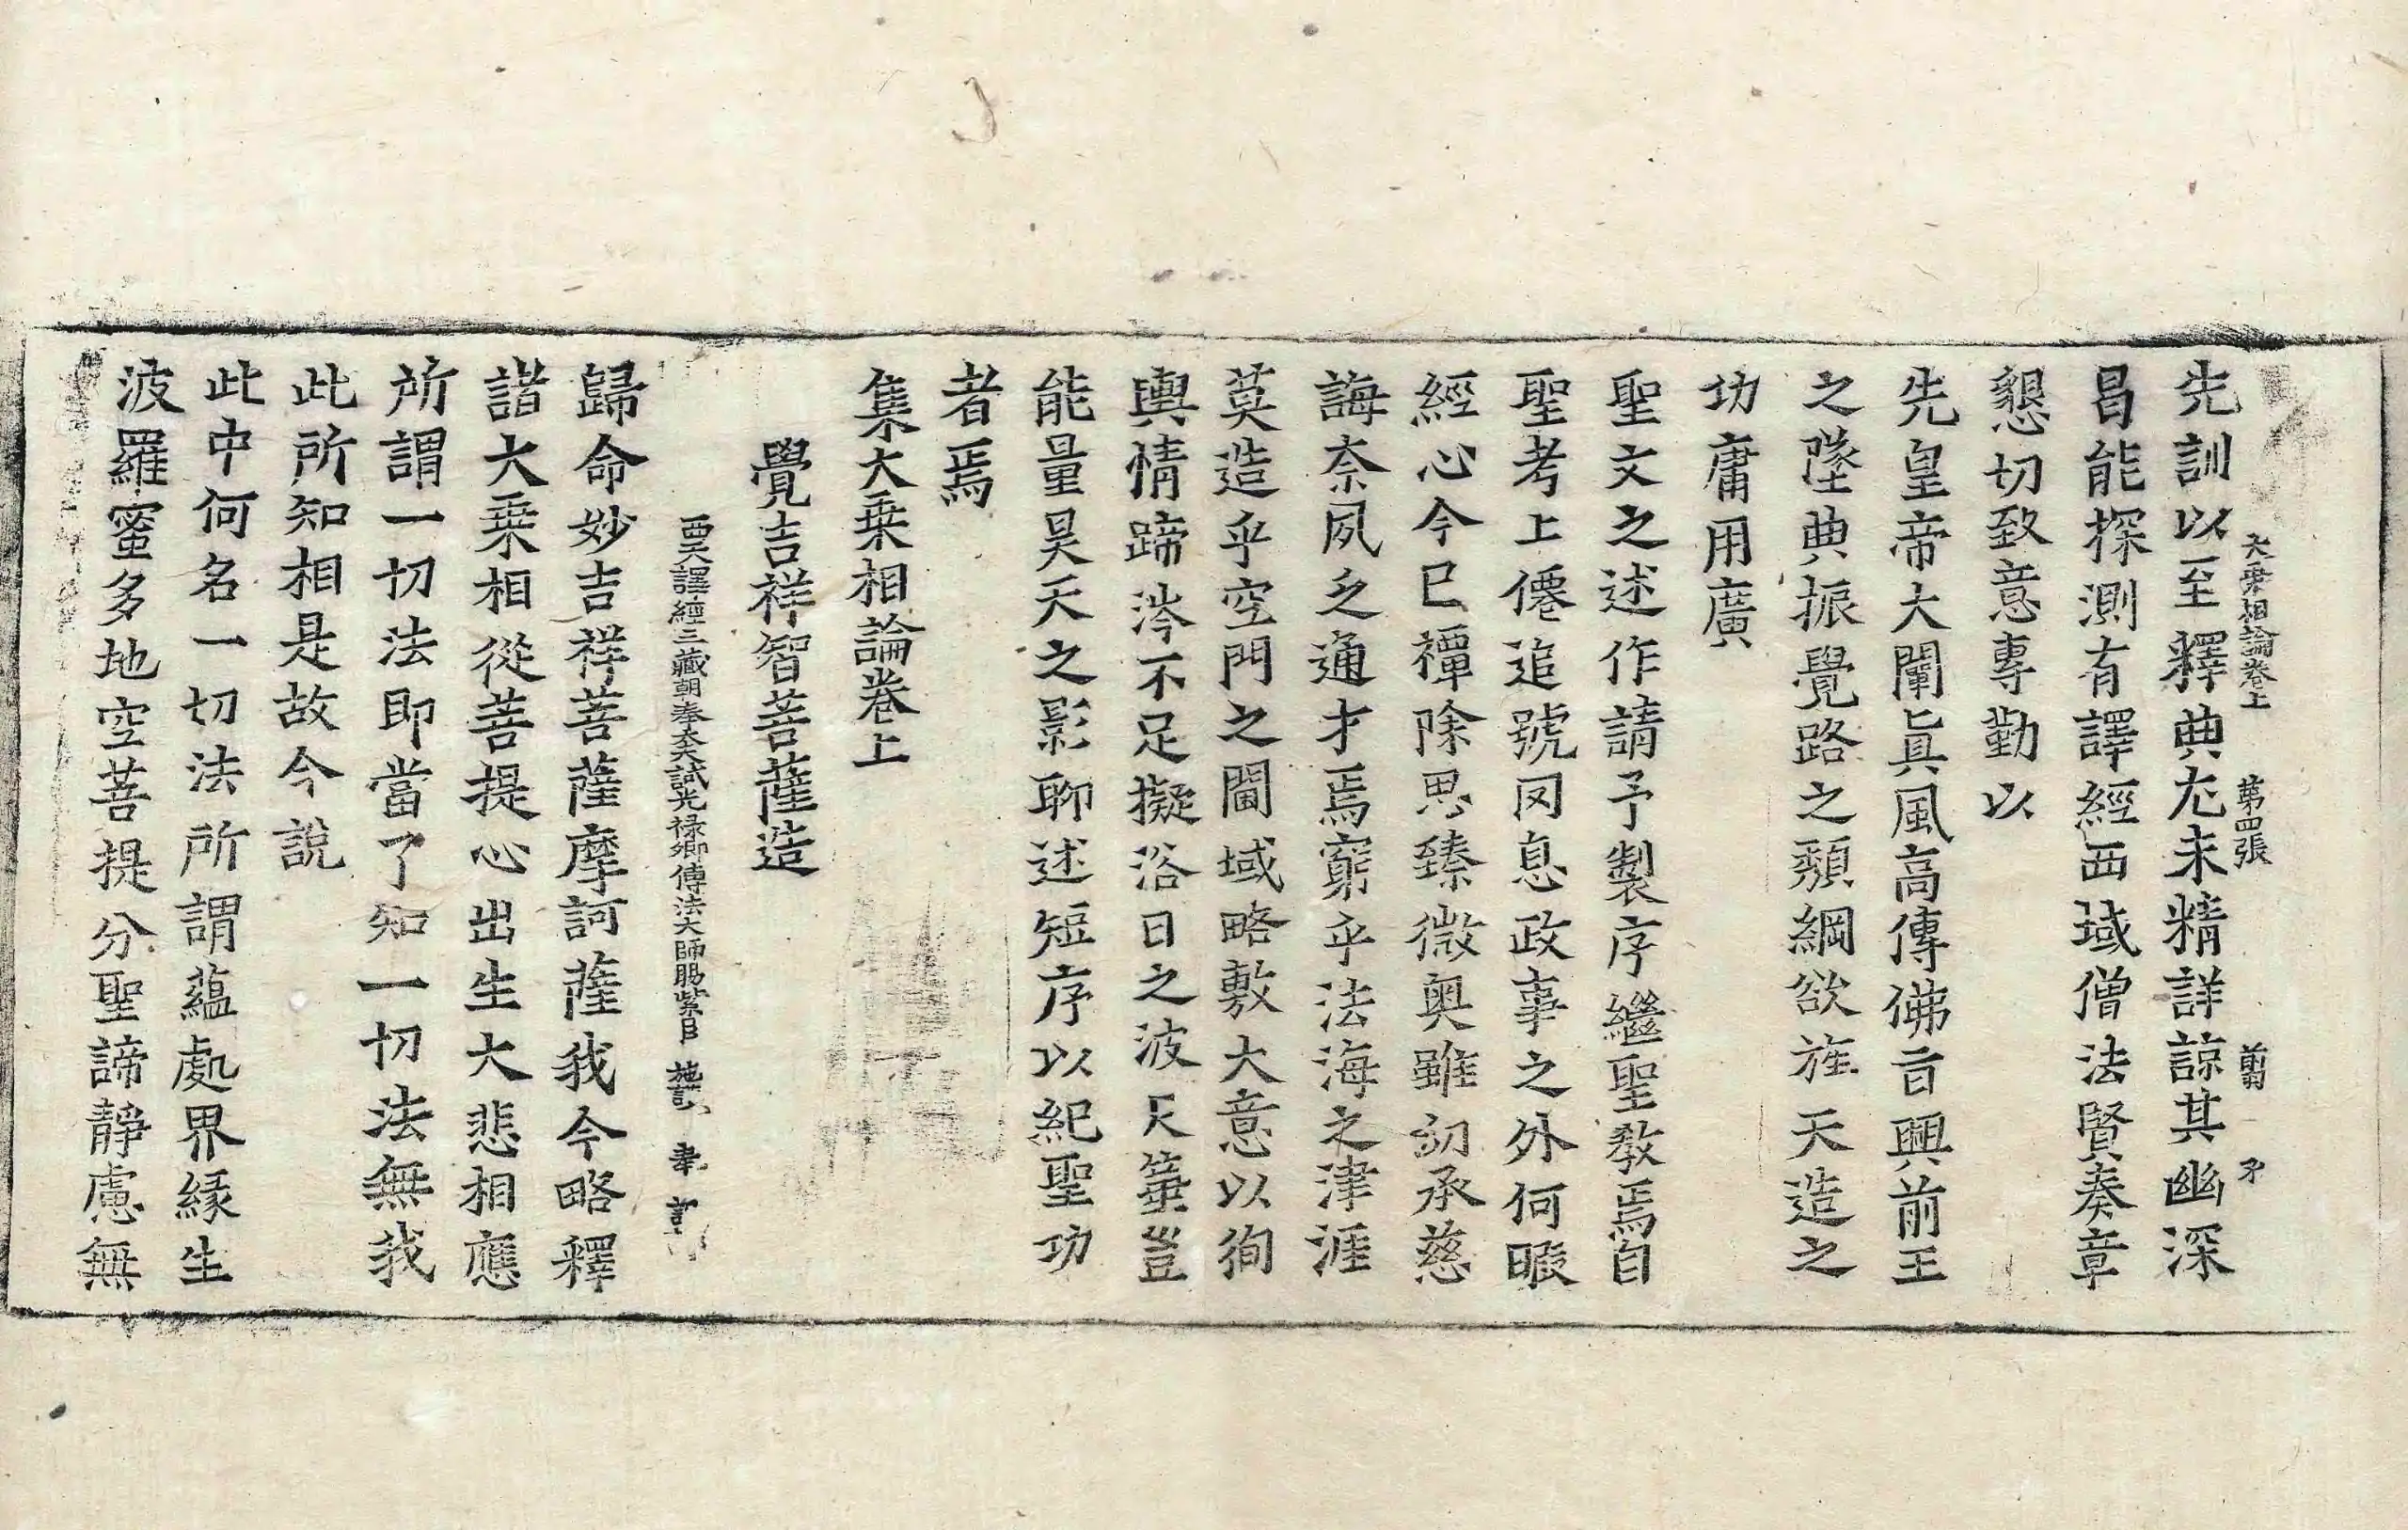 大乘相論卷上 第四張 
先訓以至釋典尤未精詳諒其幽深
曷能探測有譯經西域僧法賢奏章
懇切致意專勤以
先皇帝大闡眞風高傳佛旨興前王
之墜典振覺路之頹綱欲旌天造之
功庸用廣
聖文之述作請予製序繼聖教焉自
聖考上僊追號罔息政事之外何暇
經心今已禫除思臻微奥雖切承慈
誨奈夙乏通才焉窮乎法海之津涯
莫造乎空門之閫域略敷大意以徇
輿情蹄涔不足擬浴日之波尺箠豈
能量昊天之影聊述短序以紀聖功
者焉
集大乘相論卷上
覺吉祥智菩薩造
西天譯經三藏朝奉大夫試光禄卿傳法大師賜紫臣 施護 奉 詔
歸命妙吉祥菩薩摩訶薩我今略釋
諸大乘相從菩提心出生大悲相應
所謂一切法即當了知一切法無我
此所知相是故今說
此中何名一切法所謂蘊處界緣生
波羅蜜多地空菩提分聖諦靜慮無